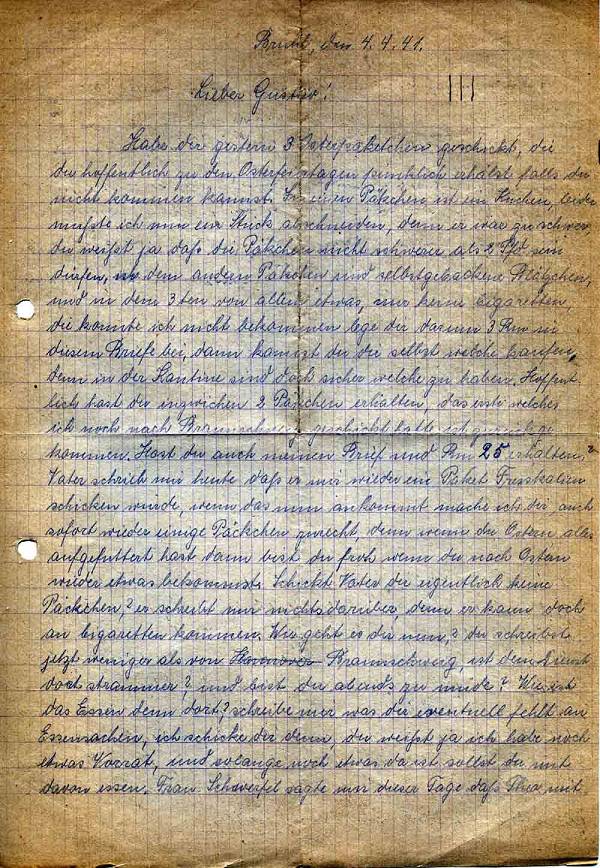 Brühl, den 4.4.41.
Lieber Gustav!
Habe dir gestern 3 Osterpaketchen geschickt, die
du hoffentlich zu den Osterfeiertagen pünktlich erhälst falls du
nicht kommen kannst. In einen Päkchen ist ein Kuchen, leider
mußte ich nur ein Stück abschneiden, denn er war zu schwer
du weißt ja daß die Päkchen nicht schwerer als 2 Pfd sein
dürfen, in dem andern Päkchen sind selbstgebackene Plätzchen,
und in dem 3ten von allem etwas, nur keine Cigaretten,
die konnte ich nicht bekommen lege dir darum 3 Rm in
diesem Briefe bei, dann kannst du dir selbst welche kaufen,
denn in der Kantine sind doch sicher welche zu haben. Hoffent
lich hast du inzwichen 2 Päkchen erhalten, das erste welches
ich noch nach Braunschweig geschickt hatte ist
kommen. Hast du auch meinen Brief und Rm 25 erhalten?
Vater schrieb mir heute daß er mir wieder ein Paket Fressalien
schicken würde, wenn das nun ankommt mache ich dir auch
sofort wieder einige Päckchen zurecht, denn wenn du Ostern alles
aufgefuttert hast dann bist du froh wenn du nach Ostern
wieder etwas bekommst. Schickt Vater dir eigentlich keine
Päckchen,? er schreibt mir nichts darüber, denn er kann doch
an Cigaretten kommen. Wie geht es dir nun,? du schreibst
jetzt weniger als von Hannover Braunschweig, ist dein Dienst
dort strammer? und bist du abends zu müde? Wie ist
das Essen denn dort,? schreibe mir was dir eventuell fehlt an
Essensachen, ich schicke dir denn, du weißt ja ich habe noch
etwas Vorrat, und solange noch etwas da ist sollst du mit
davon essen. Frau sagte mir dieser Tage daß Theo, mit